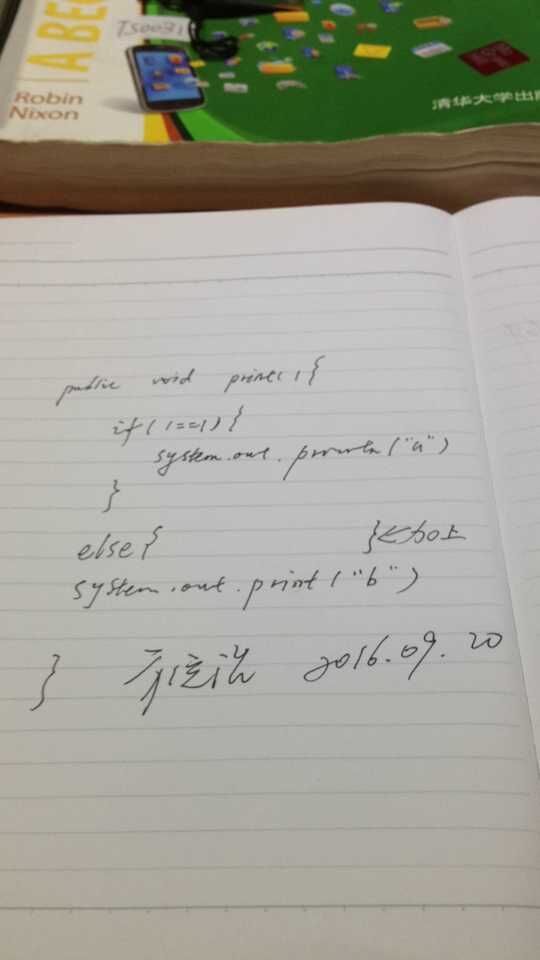 ABC
TS0031
Robin
Nixon
清华大学出版
public void print(){
if(1==1){
system.out.println("a")
}
else{ }<加上
system.out.print("b")
} 2016.09.20